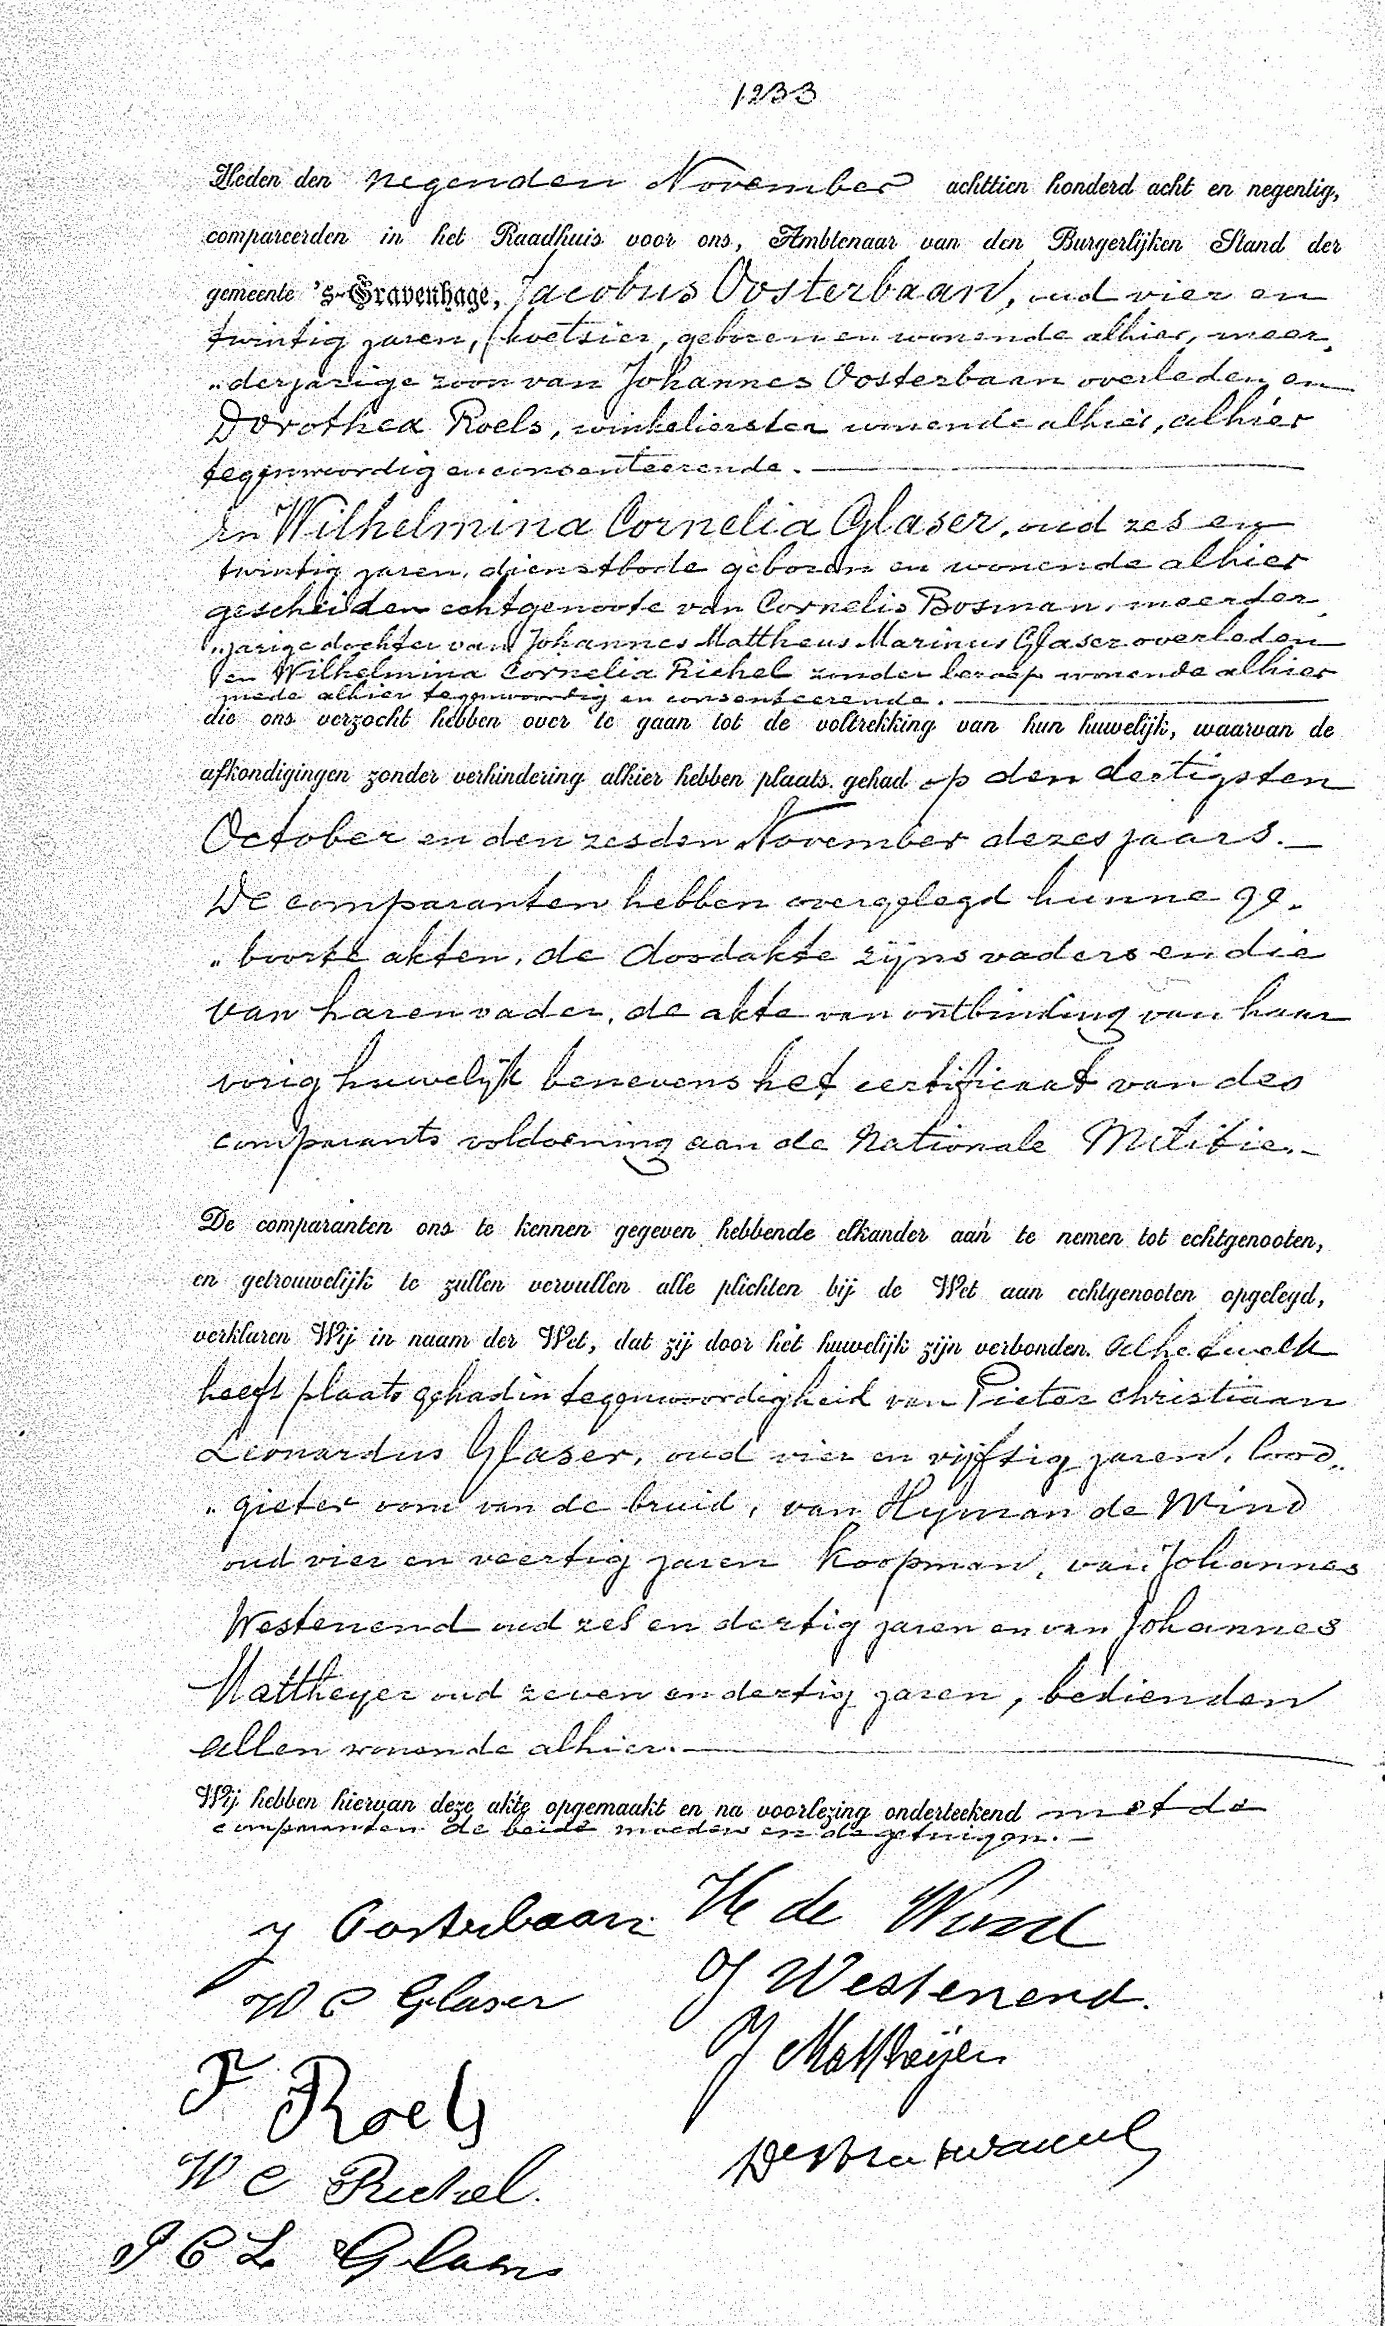 1233
Heden den negenden November achttien honderd acht en negentig,
compareerden in het Raadhuis voor ons, Ambtenaar van den Burgerlijken Stand der
gemeente 's-Gravenhage, Jacobus Oosterbaan, oud vier en
twintig jaren, koetsier, geboren en wonende alhier, meer„
„derjarige zoon van Johannes Oosterbaan overleden, en
Dorothea Roels, winkelierster wonende alhier, alhier
tegenwoordig en consenteerende.
En Wilhelmina Cornelia Glaser, oud zes en
twintig jaren, dienstbode geboren en wonende alhier
gescheiden echtgenoote van Cornelis Bosman, meerder„
„jarige dochter van Johannes Mattheus Marinus Glaser overleden
en Wilhelmina Cornelia Richel zonder beroep wonende alhier
mede alhier tegenwoordig en consenteerende.
die ons verzocht hebben over te gaan tot de voltrekking van hun huwelijk, waarvan de
afkondigingen zonder verhindering alhier hebben plaats gehad op den dertigsten
October en den zesden November dezes jaars.
De comparanten hebben overgelegd hunne ge„
„boorte akten, de doodakte zijns vaders en die
van haren vader, de akte van ontbinding van haar
vorig huwelijk benevens het certificaat van des
comparants voldoening aan de Nationale Militie.
De comparanten ons te kennen gegeven hebbende elkander aan te nemen tot echtgenooten,
en getrouwelijk te zullen vervullen alle plichten bij de Wet aan echtgenooten opgelegd,
verklaren Wij in naam der Wet, dat zij door het huwelijk zijn verbonden. Alhetwelk
heeft plaats gehad in tegenwoordigheid van Pieter Christiaan
Leonardus Glaser, oud vier en vijftig jaren, lood„
„gieter oom van de bruid, van Hyman de Wind
oud vier en veertig jaren koopman, van Johannes
Westenend oud zes en dertig jaren en van Johannes
Mattheyer oud zeven en dertig jaren, bedienden
allen wonende alhier.
Wij hebben hiervan deze akte opgemaakt en na voorlezing onderteekend met de
comparanten de beide moeders en de getuigen.
J Oosterbaan H de Wind
W C Glaser J Westenend.
J Mattheijer
Roels
W C Richel.
P C L Glaser